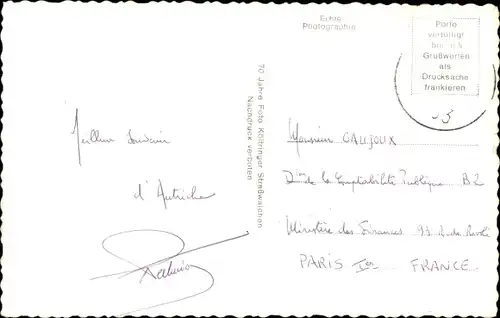 Echte
Photographie
Porto
verbilligt
bis zu 5
Grußworten
als
Drucksache
frankieren
70 Jahre Foto Költringer Straßwalchen
Nachdruck verboten
Meilleur Souvenir
d'Autriche
Monsieur GAUJOUX
Don de la Comptabilité Publique B2
Ministère des Finances 93 R. de Rivoli
PARIS Ier FRANCE